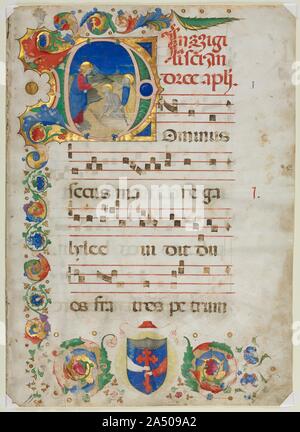 In vigi
lia sci an
dree apli.
Dominus
secus ma re ga
lylee vi dit du
os fra tres pe trum
alamy